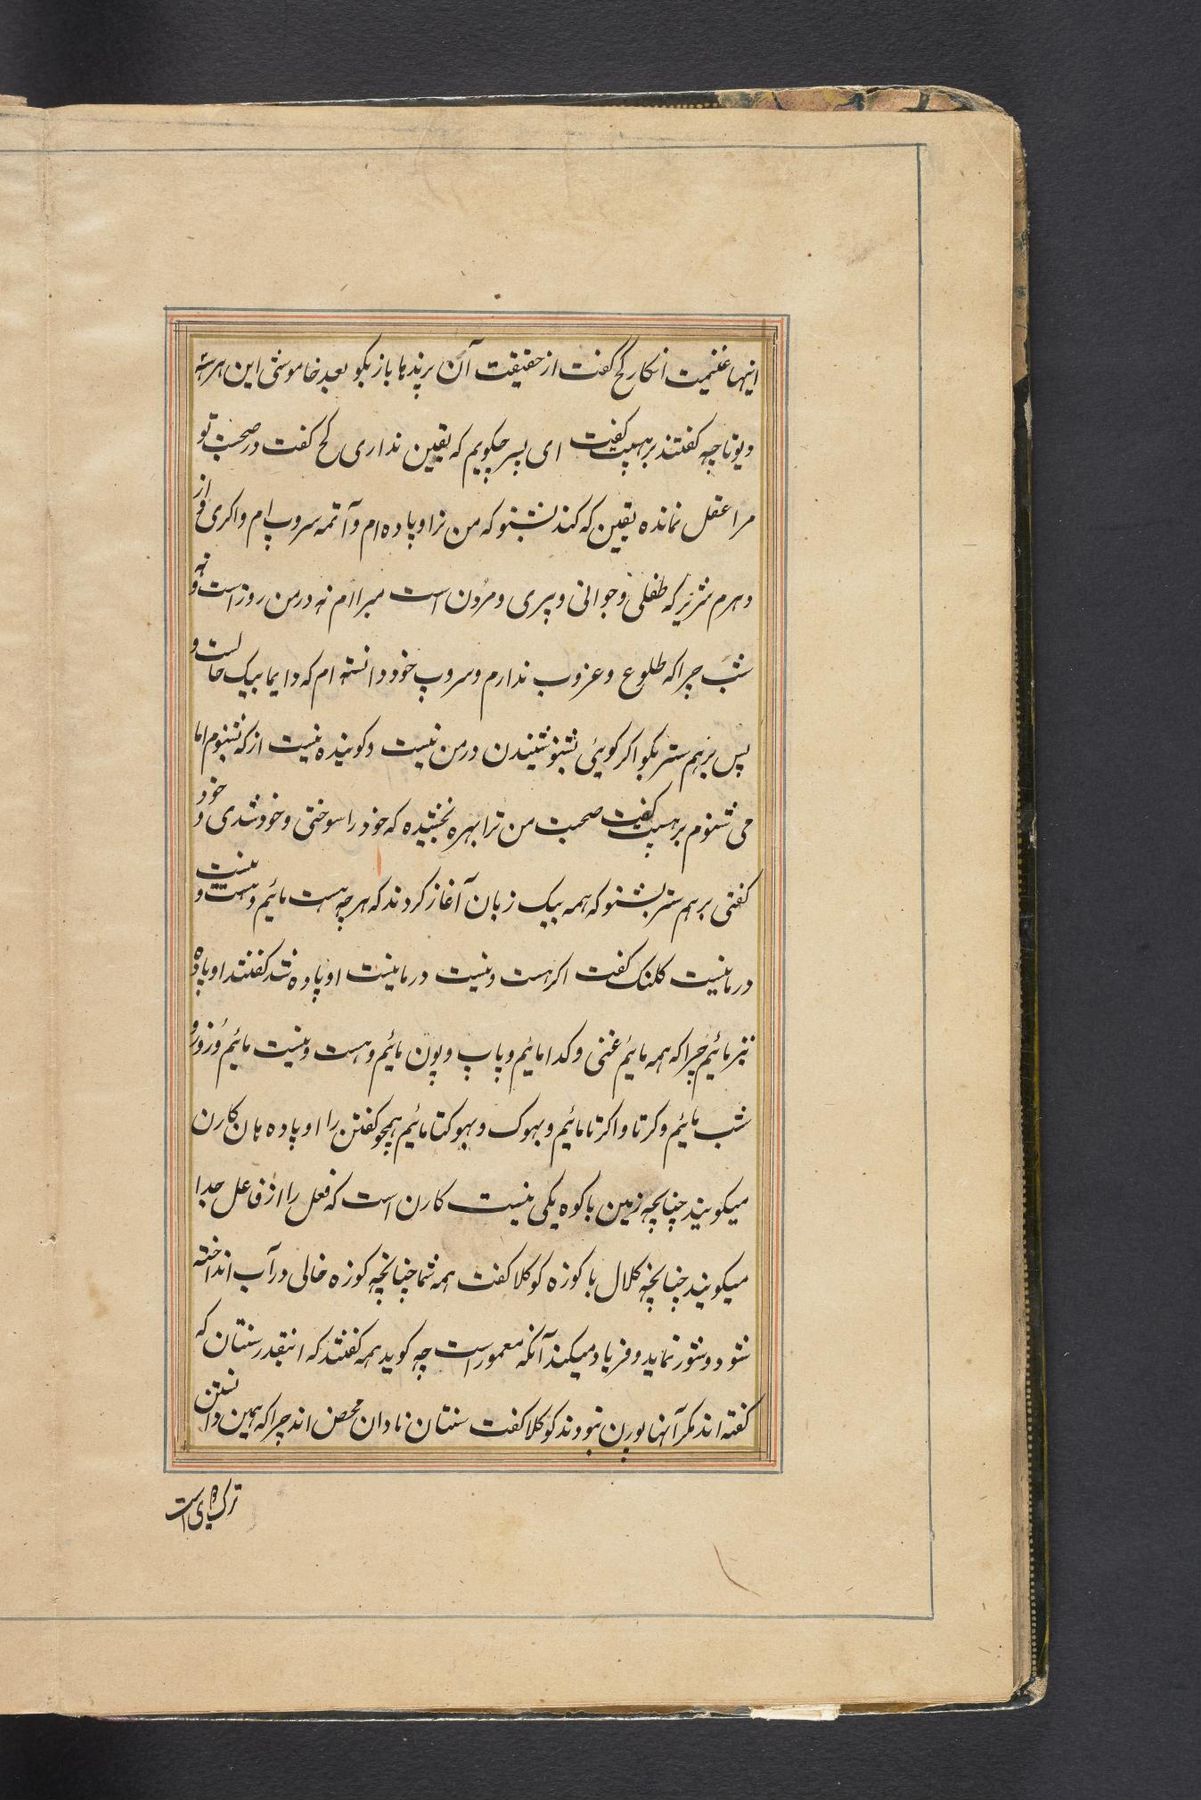 اینها غنیمت انکار کچ گفت از حقیقت آن برپدها باز بگو بعد خاموشی این هر سه
دیوتا چه گفتند برهسپت گفت ای پسر چگویم که یقین نداری کچ گفت در صحبت تو
مرا عقل نمانده یقین که کند بشنو که من نراوپاده ام و آتمه سروپ ام واکری و از
دهرم شریر که طفلی و جوانی و پیری و مردن است مبرا ام نه در من روز است و نه
شب چرا که طلوع و غروب ندارم و سروپ خود دانسته ام که دایما بیک حالت و
پس برهم ستر بگو اگر گوئی بشنو شنیدن در من نیست و گوینده نیست از که شنوم اما
می شنوم برهسپت گفت صحبت من ترا بهره بخشیده که خود را سوختی و خود شدی و خود
گفتی برهم ستر بشنو که همه بیک زبان آغاز کردند که هر چه هست مائیم و هست و نیست
در ما نیست کلنک گفت اگر هست و نیست در ما نیست اوپاده شد گفتند اوپاده
نیز مائیم چرا که همه مائیم غنی و گدا مائیم و پاپ و پون مائیم و هست و نیست مائیم و روز و
شب مائیم و کرتا و اکرتا مائیم و بهوک و بهوکتا مائیم همچو گفتن را اوپاده هان کارن
میگویند چنانچه زمین با کوه یکی نیست کارن است که فعل را از فاعل جدا
میگویند چنانچه کلال با کوزه کوکلا گفت همه شما چنانچه کوزه خالی در آب انداخته
شود و شور نماید و فریاد میکند آنکه معمور است چه گوید همه گفتند که اینقدر سنتان که
گفته اند مگر آنها پورن نبودند کوکلا گفت سنتان نادان محض اند چرا که همین دانستن
ترک